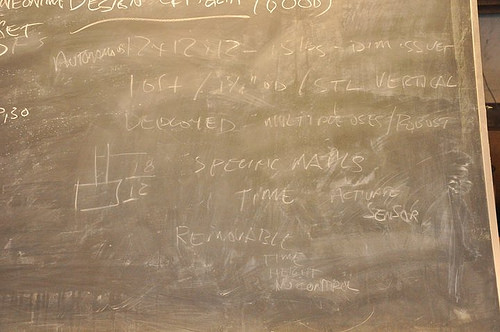 DESIGN (GOOD)
SET.
AUTONOMOUS 12 x 12 x 12 - 15 lbs - DIM ISSUE
10ft / 1 1/2" OD / STL VERTICAL
P,30
DEPLOYED MULTIPLE USES / ROBUST
SPECIFIC MATLS
18
12
TIME ACTUATE
SENSOR
REMOVABLE
TIME
HEIGHT
NO CONTROL